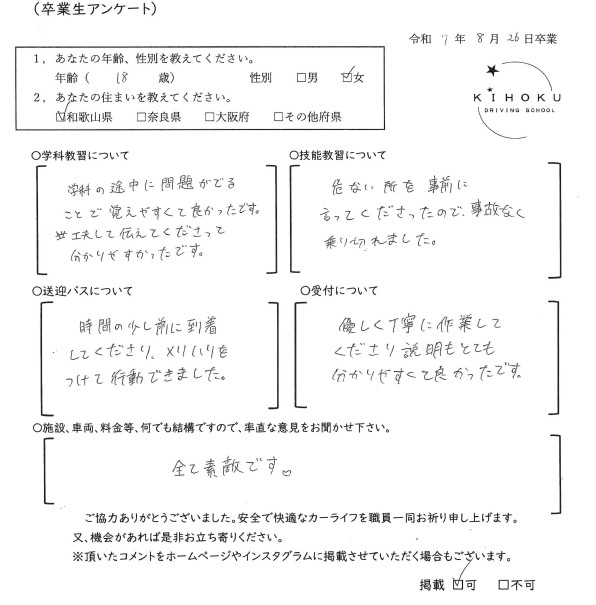 （卒業生アンケート）
令和 7 年 8 月 26 日卒業
1，あなたの年齢、性別を教えてください。
年齢（ 18 歳） 性別 □男 ☑女
2，あなたの住まいを教えてください。
☑和歌山県 □奈良県 □大阪府 □その他府県
KIHOKU
DRIVING SCHOOL
○学科教習について
学科の途中に問題がでる
ことで覚えやすくて良かったです。
工夫して伝えてくださって
分かりやすかったです。
○技能教習について
危ない所を事前に
言ってくださったので、事故なく
乗り切れました。
○送迎バスについて
時間の少し前に到着
してくださり、メリハリを
つけて行動できました。
○受付について
優しく丁寧に作業して
くださり説明もとても
分かりやすくて良かったです。
○施設、車両、料金等、何でも結構ですので、率直な意見をお聞かせ下さい。
全て素敵です♡
ご協力ありがとうございました。安全で快適なカーライフを職員一同お祈り申し上げます。
又、機会があれば是非お立ち寄りください。
※頂いたコメントをホームページやインスタグラムに掲載させていただく場合もございます。
掲載 ☑可 □不可